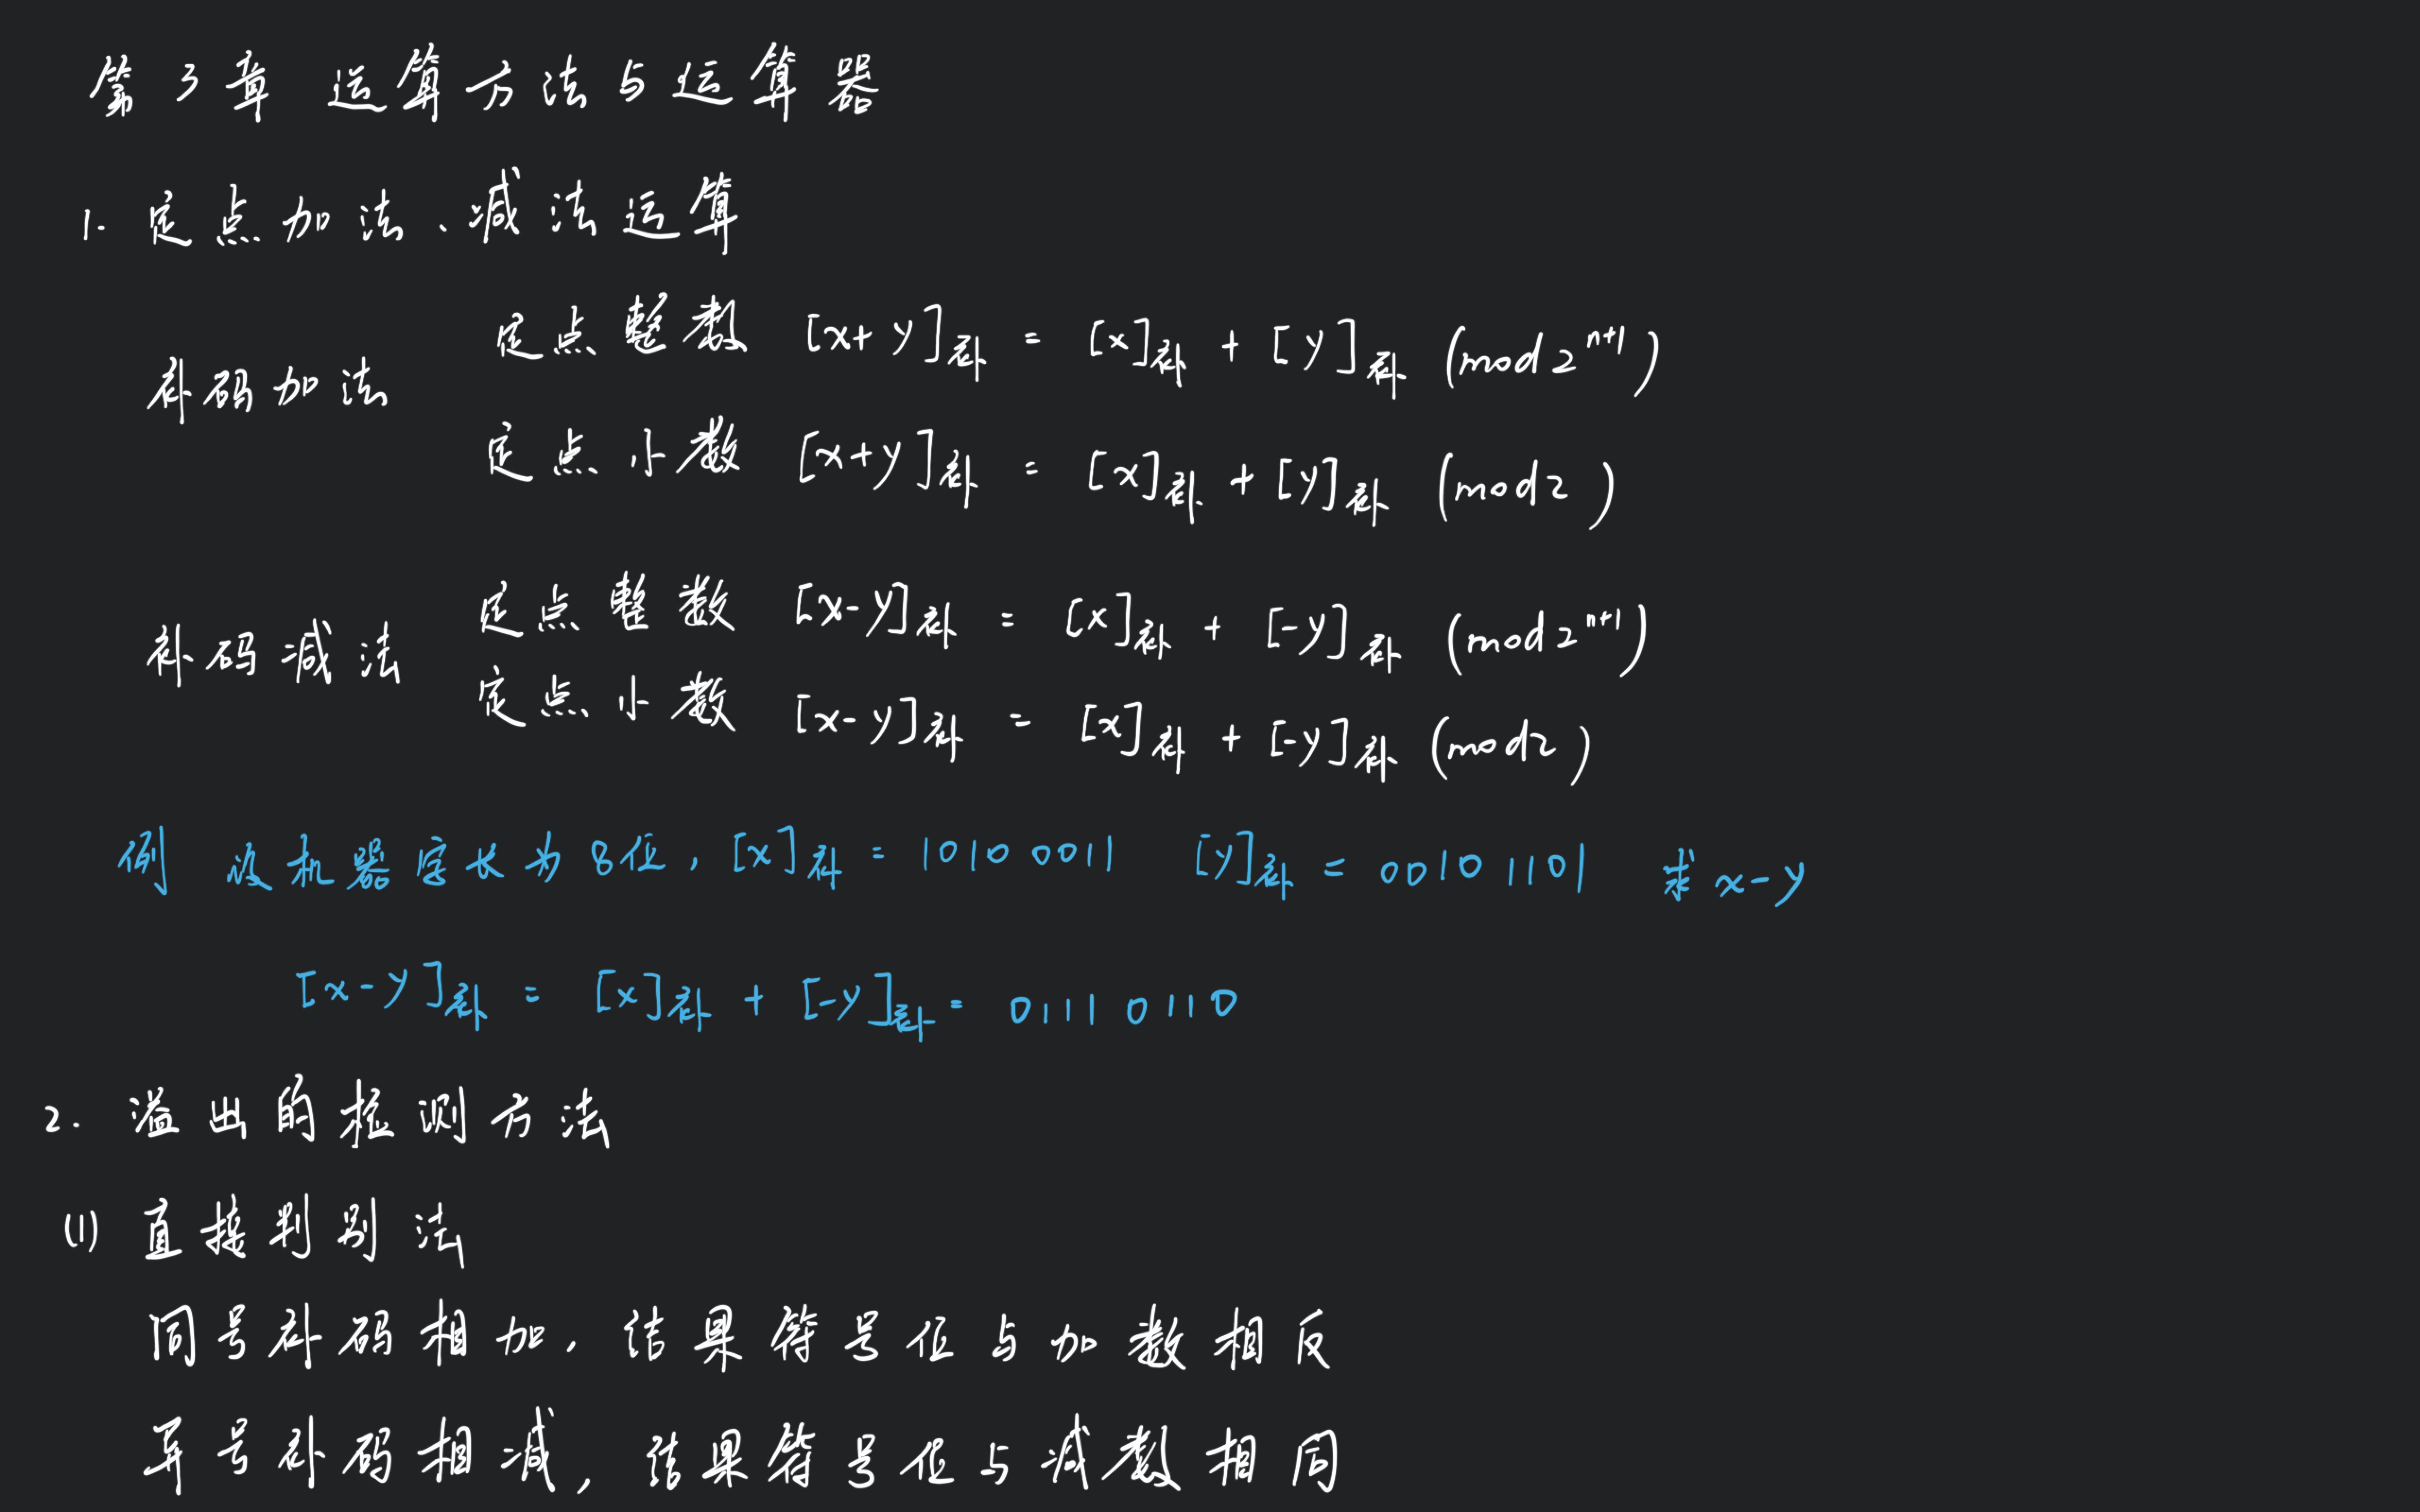 第3章 运算方法与运算器
1. 定点加法、减法运算
定点整数 [x+y]补 = [x]补 + [y]补 (mod 2^{n+1})
补码加法
定点小数 [x+y]补 = [x]补 + [y]补 (mod 2)
定点整数 [x-y]补 = [x]补 + [-y]补 (mod 2^{n+1})
补码减法
定点小数 [x-y]补 = [x]补 + [-y]补 (mod 2)
例 设机器字长为8位, [x]补 = 1010 0011 [y]补 = 0010 1101 求x-y
[x-y]补 = [x]补 + [-y]补 = 0111 0110
2. 溢出的检测方法
(1) 直接判别法
同号补码相加, 结果符号位与加数相反
异号补码相减, 结果符号位与减数相同